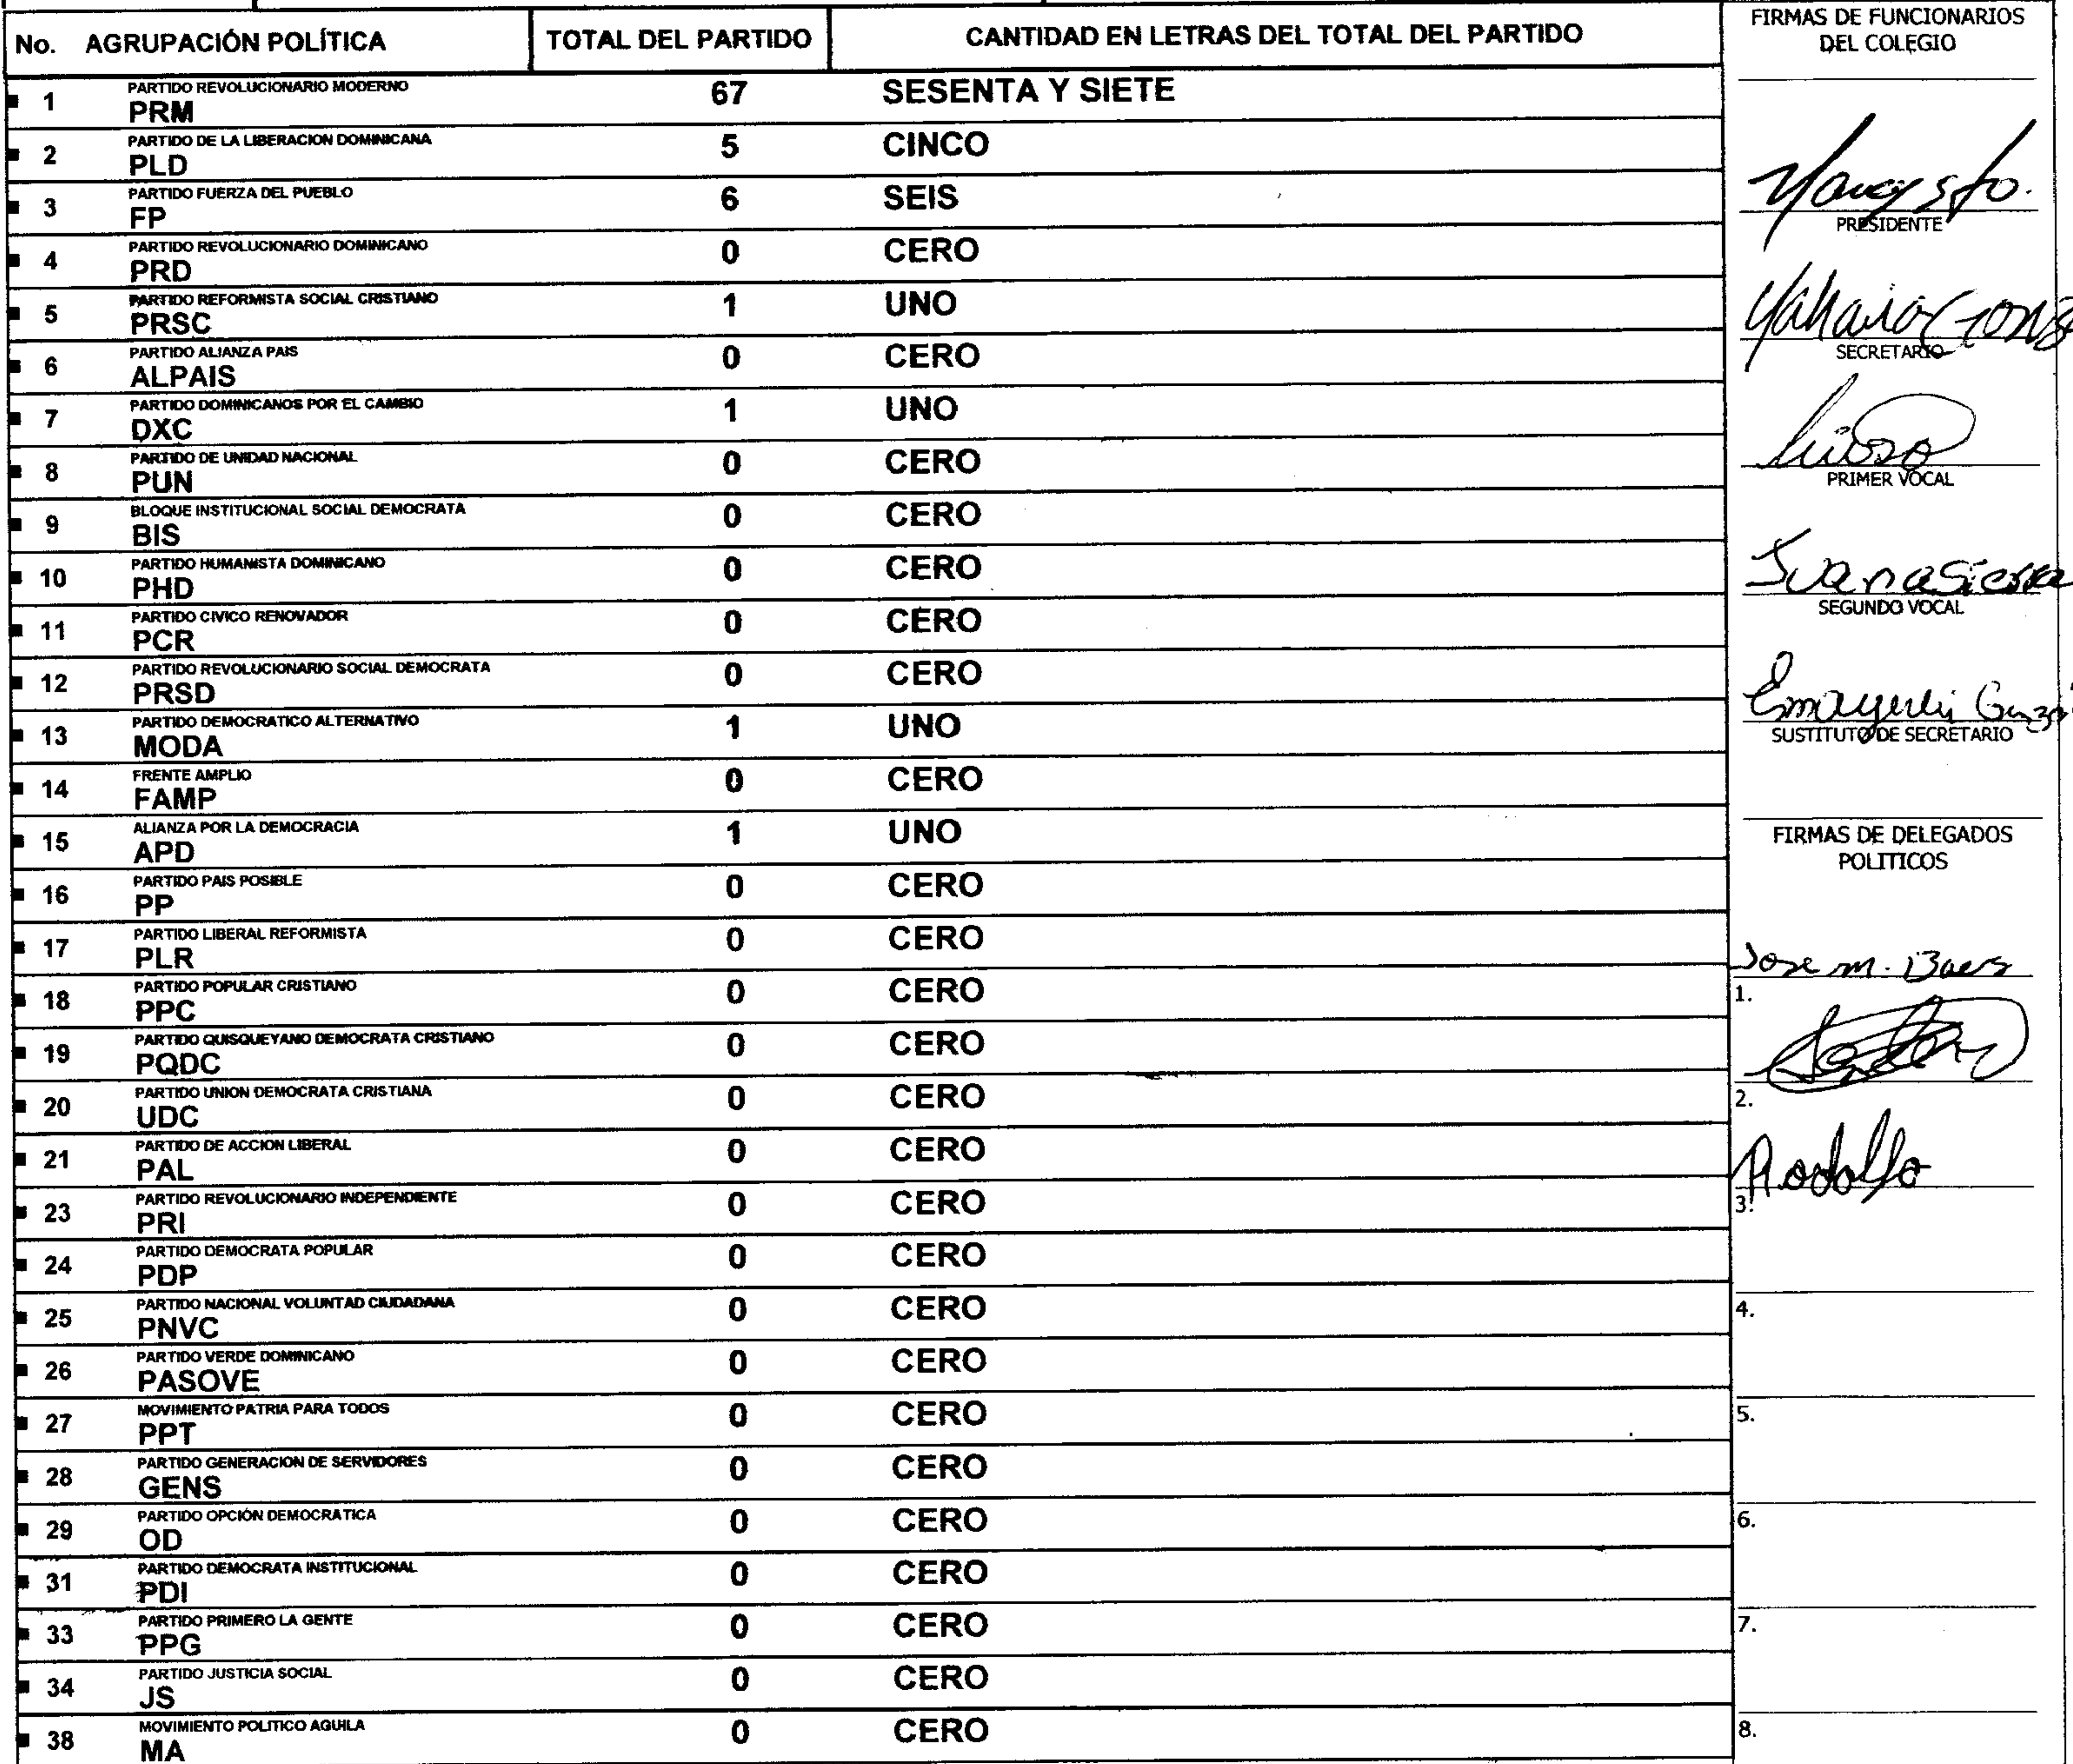 No. AGRUPACIÓN POLÍTICA TOTAL DEL PARTIDO CANTIDAD EN LETRAS DEL TOTAL DEL PARTIDO
1 PARTIDO REVOLUCIONARIO MODERNO
PRM 67 SESENTA Y SIETE
2 PARTIDO DE LA LIBERACION DOMINICANA
PLD 5 CINCO
3 PARTIDO FUERZA DEL PUEBLO
FP 6 SEIS
4 PARTIDO REVOLUCIONARIO DOMINICANO
PRD 0 CERO
5 PARTIDO REFORMISTA SOCIAL CRISTIANO
PRSC 1 UNO
6 PARTIDO ALIANZA PAIS
ALPAIS 0 CERO
7 PARTIDO DOMINICANOS POR EL CAMBIO
DXC 1 UNO
8 PARTIDO DE UNIDAD NACIONAL
PUN 0 CERO
9 BLOQUE INSTITUCIONAL SOCIAL DEMOCRATA
BIS 0 CERO
10 PARTIDO HUMANISTA DOMINICANO
PHD 0 CERO
11 PARTIDO CIVICO RENOVADOR
PCR 0 CERO
12 PARTIDO REVOLUCIONARIO SOCIAL DEMOCRATA
PRSD 0 CERO
13 PARTIDO DEMOCRATICO ALTERNATIVO
MODA 1 UNO
14 FRENTE AMPLIO
FAMP 0 CERO
15 ALIANZA POR LA DEMOCRACIA
APD 1 UNO
16 PARTIDO PAIS POSIBLE
PP 0 CERO
17 PARTIDO LIBERAL REFORMISTA
PLR 0 CERO
18 PARTIDO POPULAR CRISTIANO
PPC 0 CERO
19 PARTIDO QUISQUEYANO DEMOCRATA CRISTIANO
PQDC 0 CERO
20 PARTIDO UNION DEMOCRATA CRISTIANA
UDC 0 CERO
21 PARTIDO DE ACCION LIBERAL
PAL 0 CERO
23 PARTIDO REVOLUCIONARIO INDEPENDIENTE
PRI 0 CERO
24 PARTIDO DEMOCRATA POPULAR
PDP 0 CERO
25 PARTIDO NACIONAL VOLUNTAD CIUDADANA
PNVC 0 CERO
26 PARTIDO VERDE DOMINICANO
PASOVE 0 CERO
27 MOVIMIENTO PATRIA PARA TODOS
PPT 0 CERO
28 PARTIDO GENERACION DE SERVIDORES
GENS 0 CERO
29 PARTIDO OPCIÓN DEMOCRATICA
OD 0 CERO
31 PARTIDO DEMOCRATA INSTITUCIONAL
PDI 0 CERO
33 PARTIDO PRIMERO LA GENTE
PPG 0 CERO
34 PARTIDO JUSTICIA SOCIAL
JS 0 CERO
38 MOVIMIENTO POLITICO AGUILA
MA 0 CERO
FIRMAS DE FUNCIONARIOS
DEL COLEGIO
PRESIDENTE
SECRETARIO
PRIMER VOCAL
SEGUNDO VOCAL
SUSTITUTO DE SECRETARIO
FIRMAS DE DELEGADOS
POLITICOS
Jose m.
1.
2.
Rodolfo
3.
4.
5.
6.
7.
8.